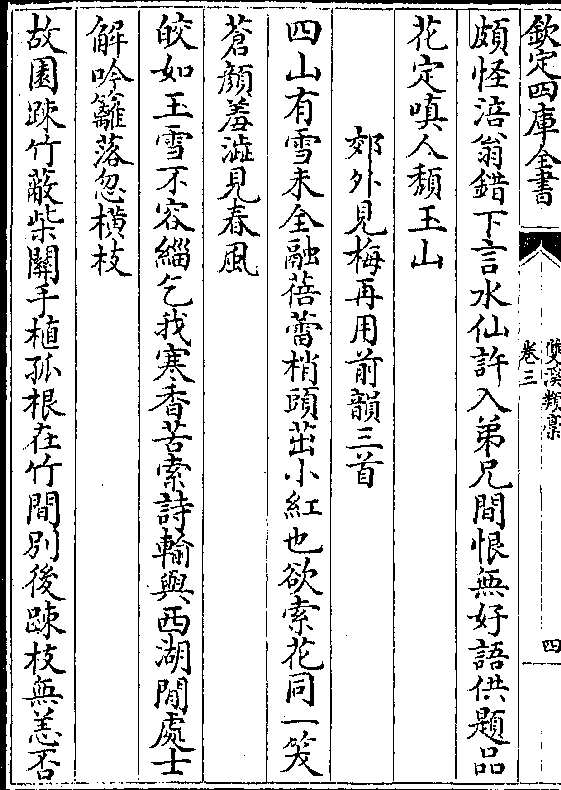 欽定四庫全書
雙溪類稾
卷三
四
頗怪涪翁錯下言水仙許入弟兄間恨無好語供題品
花定嗔人頽玉山
郊外見梅再用前韻三首
四山有雪未全融蓓蕾梢頭茁小紅也欲索花同一笑
蒼顔羞澁見春風
皎如玉雪不容緇乞我寒香苦索詩輸與西湖閒處士
解吟籬落忽橫枝
故園踈竹蔽柴關手植孤根在竹間别後踈枝無恙否